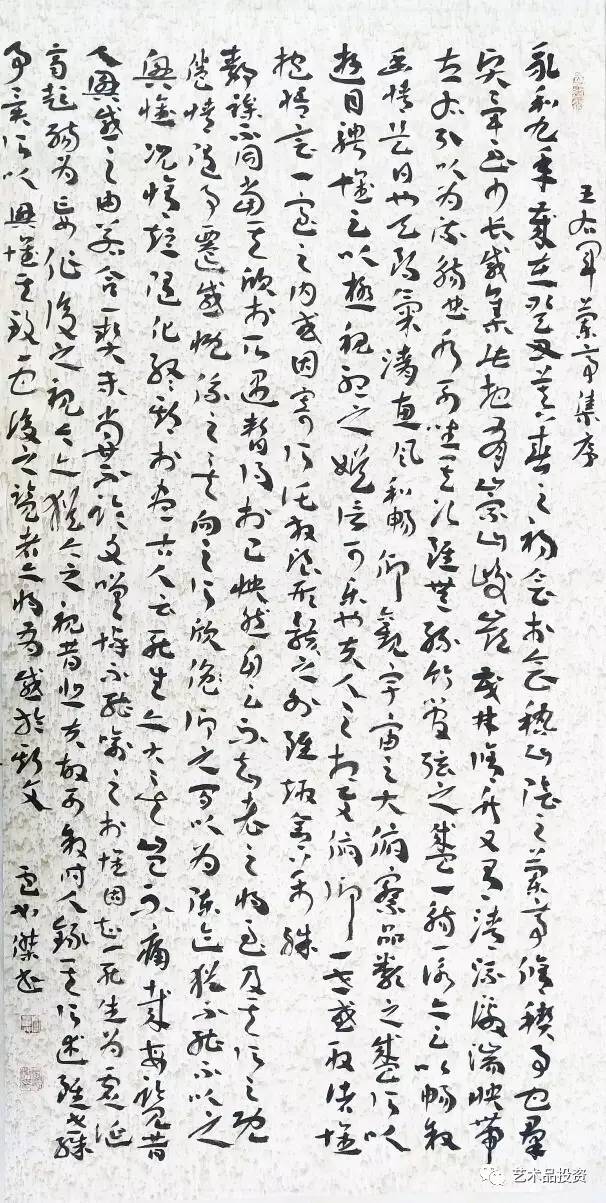 王右軍蘭亭集序
永和九年歲在癸丑暮春之初會於會稽山陰之蘭亭修禊事也羣
賢畢至少長咸集此地有崇山峻嶺茂林修竹又有清流激湍映帶
左右引以為流觴曲水列坐其次雖無絲竹管弦之盛一觴一詠亦足以暢敘
幽情是日也天朗氣清惠風和暢仰觀宇宙之大俯察品類之盛所以
遊目騁懷足以極視聽之娛信可樂也夫人之相與俯仰一世或取諸懷
抱悟言一室之內或因寄所託放浪形骸之外雖趣舍萬殊
靜躁不同當其欣於所遇暫得於己怏然自足不知老之將至及其所之既
倦情隨事遷感慨係之矣向之所欣俛仰之間以為陳迹猶不能不以之
興懷況修短隨化終期於盡古人云死生亦大矣豈不痛哉每覽昔
人興感之由若合一契未嘗不臨文嗟悼不能喻之於懷固知一死生為虛誕
齊彭殤為妄作後之視今亦猶今之視昔悲夫故列敘時人錄其所述雖世殊
事異所以興懷其致一也後之覽者亦將有感於斯文 傑書
艺术品投资